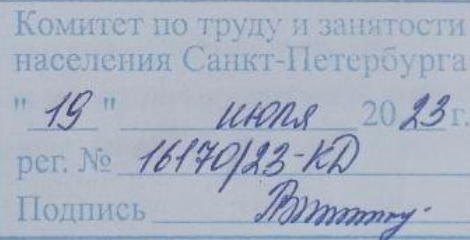 Комитет по труду и занятости
населения Санкт-Петербурга
"19" июля 2023 г.
рег. № 16170/23-КД
Подпись